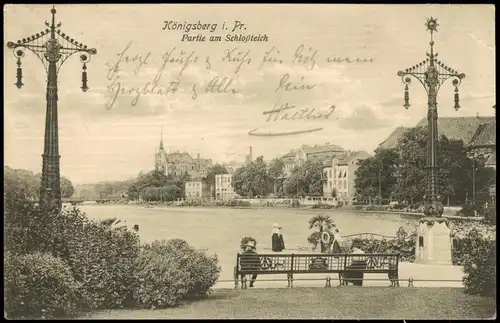 Königsberg i. Pr.
Partie am Schloßteich
Herzl. Grüße u. Kuß für Dich mein
Herzblatt u. Alle Dein
Walther